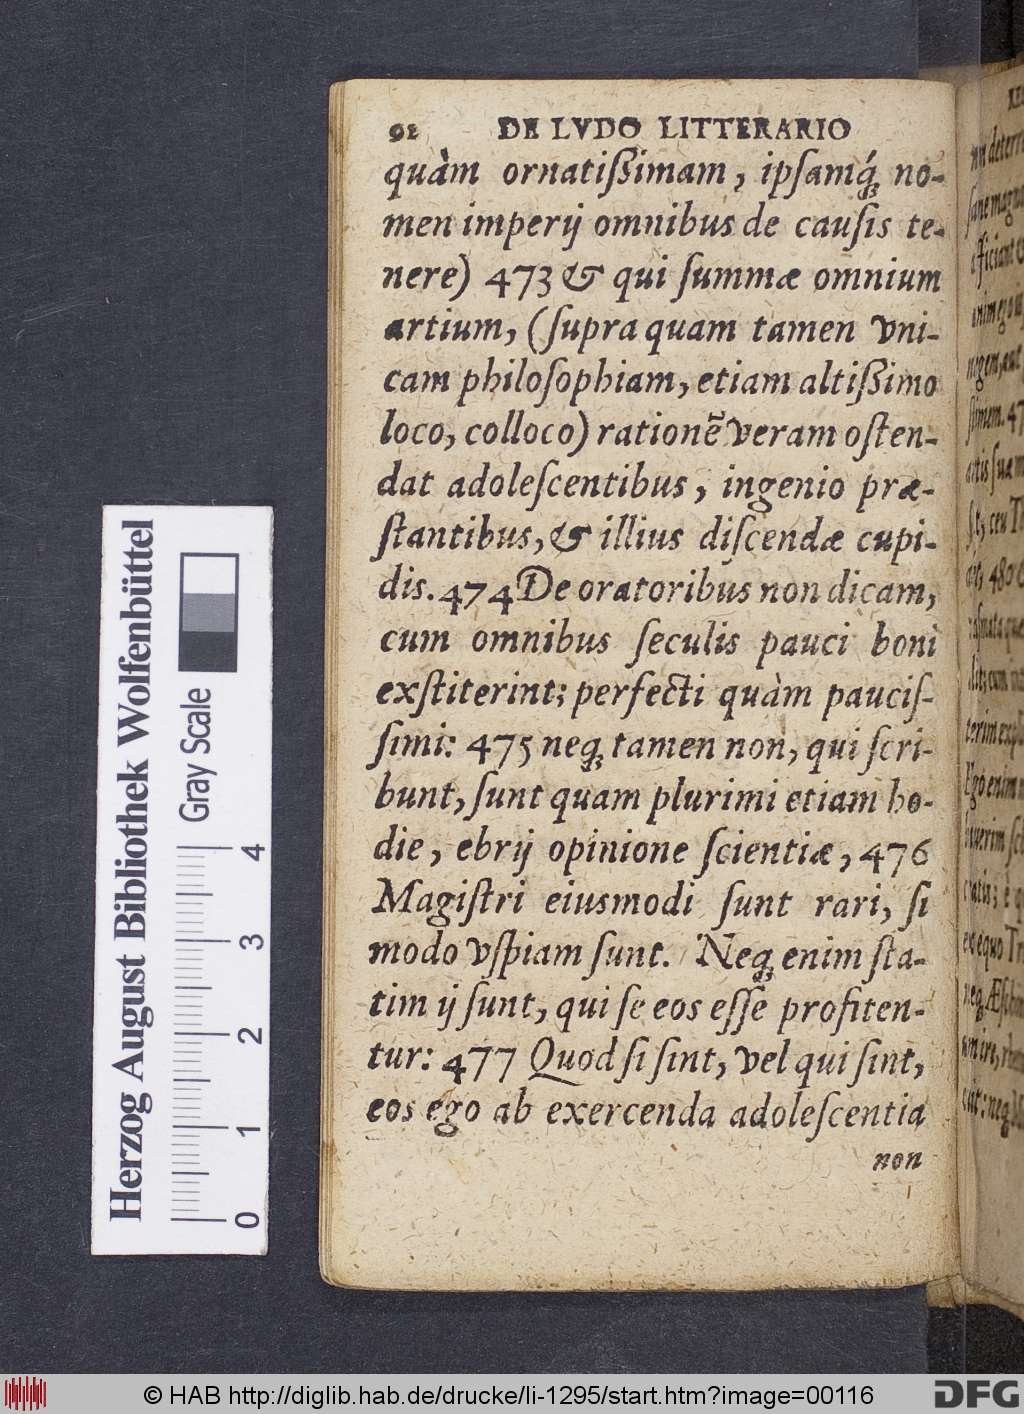 92 DE LVDO LITTERARIO
quàm ornatißimam, ipſamq́; no-
men imperij omnibus de cauſis te-
nere) 473 & qui ſummæ omnium
artium, (ſupra quam tamen vni-
cam philoſophiam, etiam altißimo
loco, colloco) rationẽ veram oſten-
dat adoleſcentibus, ingenio præ-
ſtantibus, & illius diſcendæ cupi-
dis. 474 De oratoribus non dicam,
cum omnibus ſeculis pauci boni
exſtiterint; perfecti quàm pauciſ-
ſimi: 475 neq; tamen non, qui ſcri-
bunt, ſunt quam plurimi etiam ho-
die, ebrij opinione ſcientiæ, 476
Magiſtri eiusmodi ſunt rari, ſi
modo vſpiam ſunt. Neq; enim ſta-
tim ij ſunt, qui ſe eos eſſe profiten-
tur: 477 Quod ſi ſint, vel qui ſint,
eos ego ab exercenda adoleſcentia
non
Herzog August Bibliothek Wolfenbüttel
Gray Scale
0 1 2 3 4
© HAB http://diglib.hab.de/drucke/li-1295/start.htm?image=00116
DFG